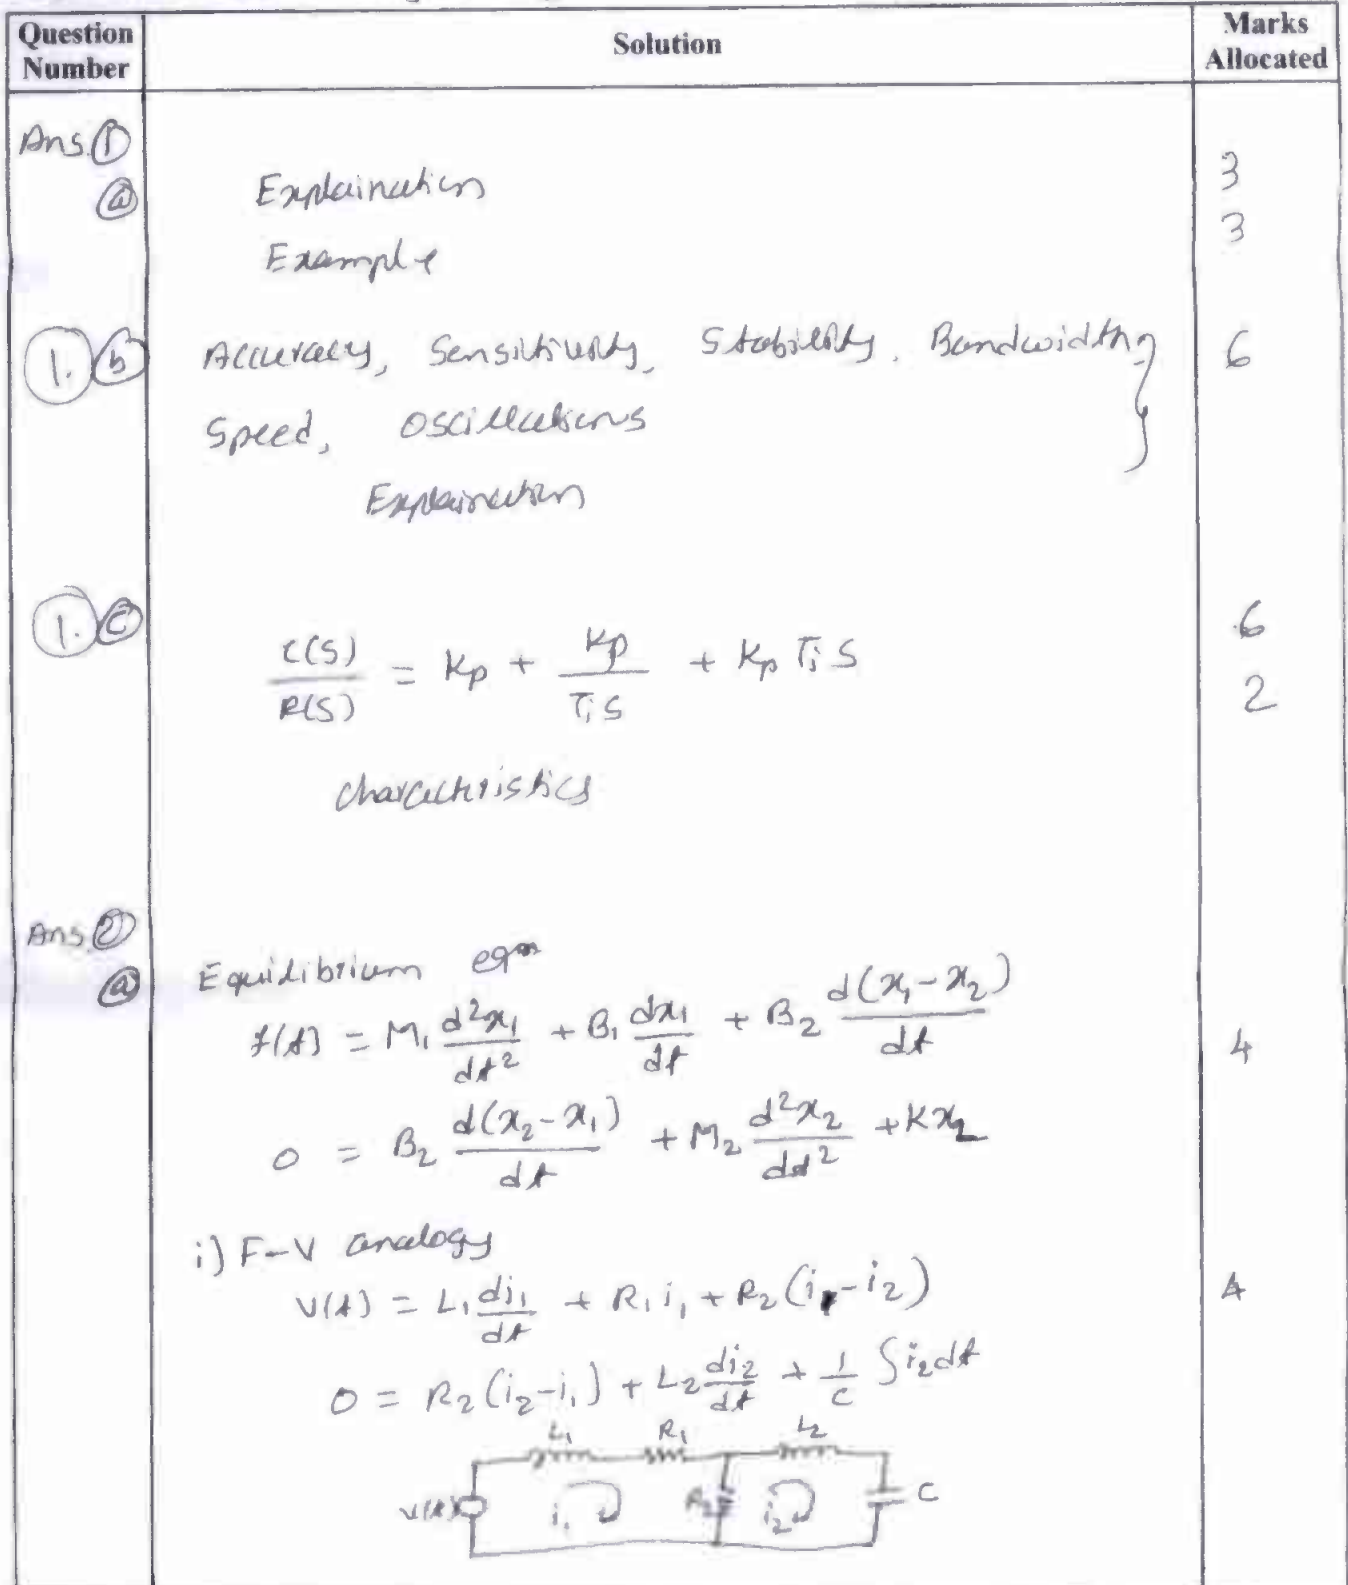 Question Number Solution Marks Allocated
Ans. ①
ⓐ Explaination 3
Example 3
1. ⓑ Accuracy, Sensitivity, Stability, Bandwidth, 6
Speed, Oscillations }
Explaination
1. ⓒ C(S)/R(S) = Kp + Kp/TiS + Kp Ti S 6
2
characteristics
Ans. ②
ⓐ Equidibrium eqn
f(t) = M1 d²x1/dt² + B1 dx1/dt + B2 d(x1-x2)/dt 4
0 = B2 d(x2-x1)/dt + M2 d²x2/dt² + Kx2
i) F-V analogy
V(t) = L1 di1/dt + R1 i1 + R2 (i1-i2) 4
0 = R2 (i2-i1) + L2 di2/dt + 1/C ∫i2dt
L1 R1 L2
V(t) i1 R2 i2 C